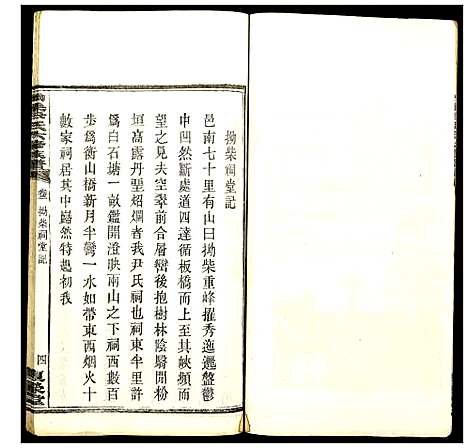 拗柴祠堂記
邑南七十里有山曰拗柴重峰擢秀迤邐盤鬱
中凹然斷處道四達循板橋而上其峽頫而
望之見夫空翠前合層巒後抱樹林陰翳開粉
垣高露丹堊炤爛者我尹氏祠也祠東半里許
為白石塘一畝鑑開澄映南山之下祠西數百
步為衡山橋新月半彎一水如帶東西烟火十
數家祠居其中巋然特起初我
氏六修族譜
卷 拗柴祠堂記
四